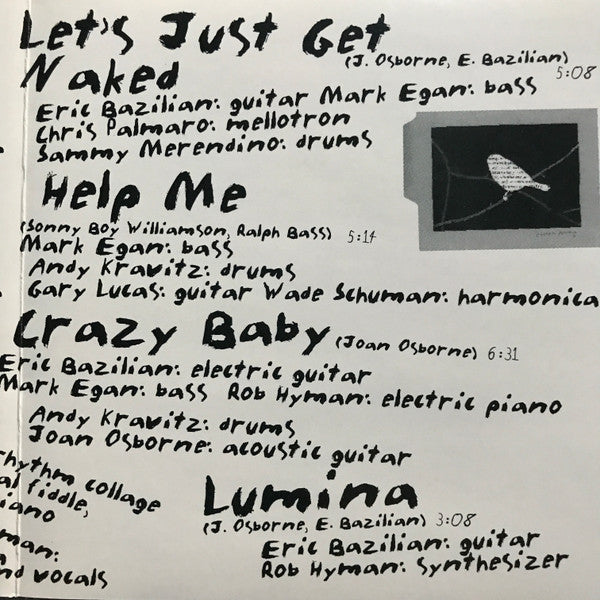 Let's Just Get
(J. Osborne, E. Bazilian)
Naked
5:08
Eric Bazilian: guitar Mark Egan: bass
Chris Palmaro: mellotron
Sammy Merendino: drums
Help Me
(Sonny Boy Williamson, Ralph Bass) 5:14
Mark Egan: bass
Andy Kravitz: drums
Gary Lucas: guitar Wade Schuman: harmonica
Crazy Baby (Joan Osborne) 6:31
Eric Bazilian: electric guitar
Mark Egan: bass Rob Hyman: electric piano
Andy Kravitz: drums
Joan Osborne: acoustic guitar
rhythm collage
al fiddle,
iano
man:
nd vocals
Lumina
(J. Osborne, E. Bazilian) 3:08
Eric Bazilian: guitar
Rob Hyman: synthesizer